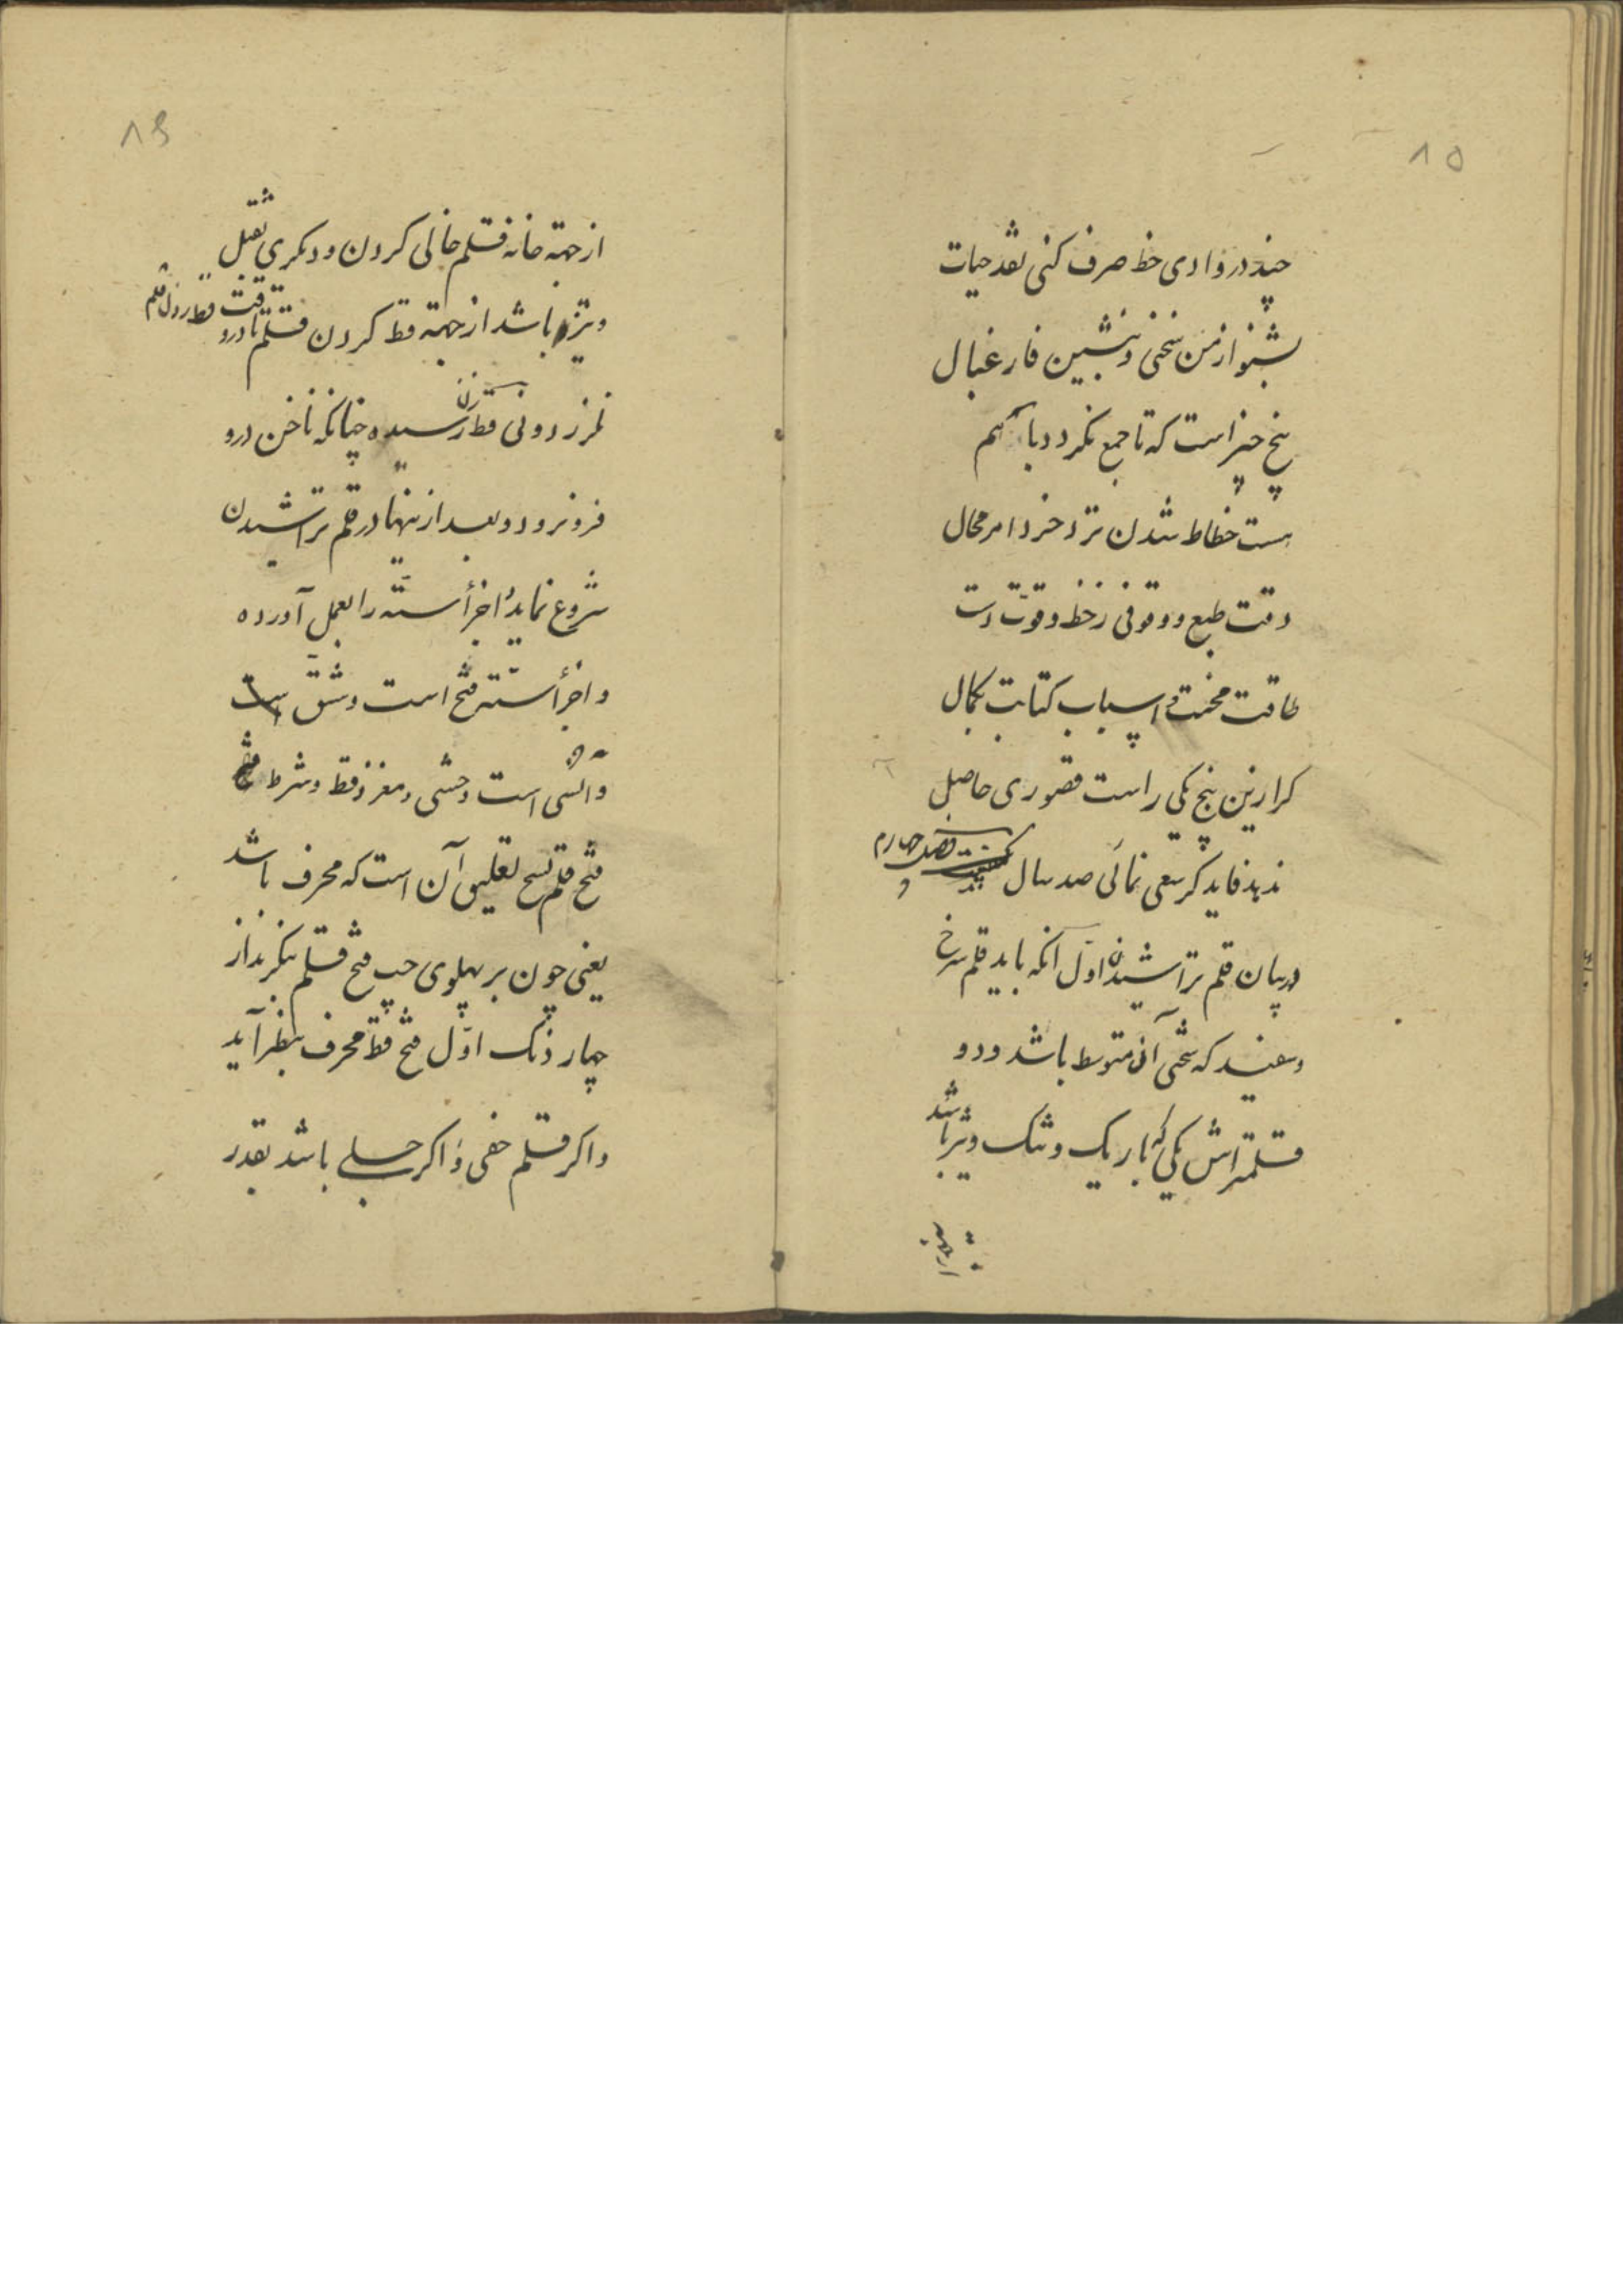 ۱۵
چند در وادی خط صرف کنی نقد حیات
بشنو از من سخنی و بنشین فارغ بال
پنج چیز است که تا جمع نکردد باهم
هست خطاط شدن نزد خرد امر محال
دقت طبع و وقوفی ز خط و قوت دست
طاقت محنت و اسباب کتابت بکمال
کر ازین پنج یکی راست قصوری حاصل
ندهد فایده کر سعی نمائی صد سال
فصل چهارم
در بیان قلم تراشیدن اول آنکه باید قلم سرخ
و سفید که سختی آن متوسط باشد و دو
قلمتراش یکی که باریک و تنک و تیز باشد
۱۶
از جهته خانه قلم خالی کردن و دیکری ثقیل
و تیز باشد از جهته قط کردن قلم تا در وقت قط زدن قلم
نلرزد و نی قط زن رسیده چنانکه ناخن درو
فرو نرود و بعد از ینها در قلم تراشیدن
شروع نماید و اجزأ سته را بعمل آورده
و اجزأ سته فتح است و شق است
و انسی است و حشی و مغز و قط و شرط فتح
فتح قلم نسخ تعلیق آن است که محرف باشد
یعنی چون بر پهلوی چپ فتح قلم بنکرند از
چهار دنک اول فتح قط محرف بنظر آید
و اکر قلم خفی و اکر جلی باشد بقدر